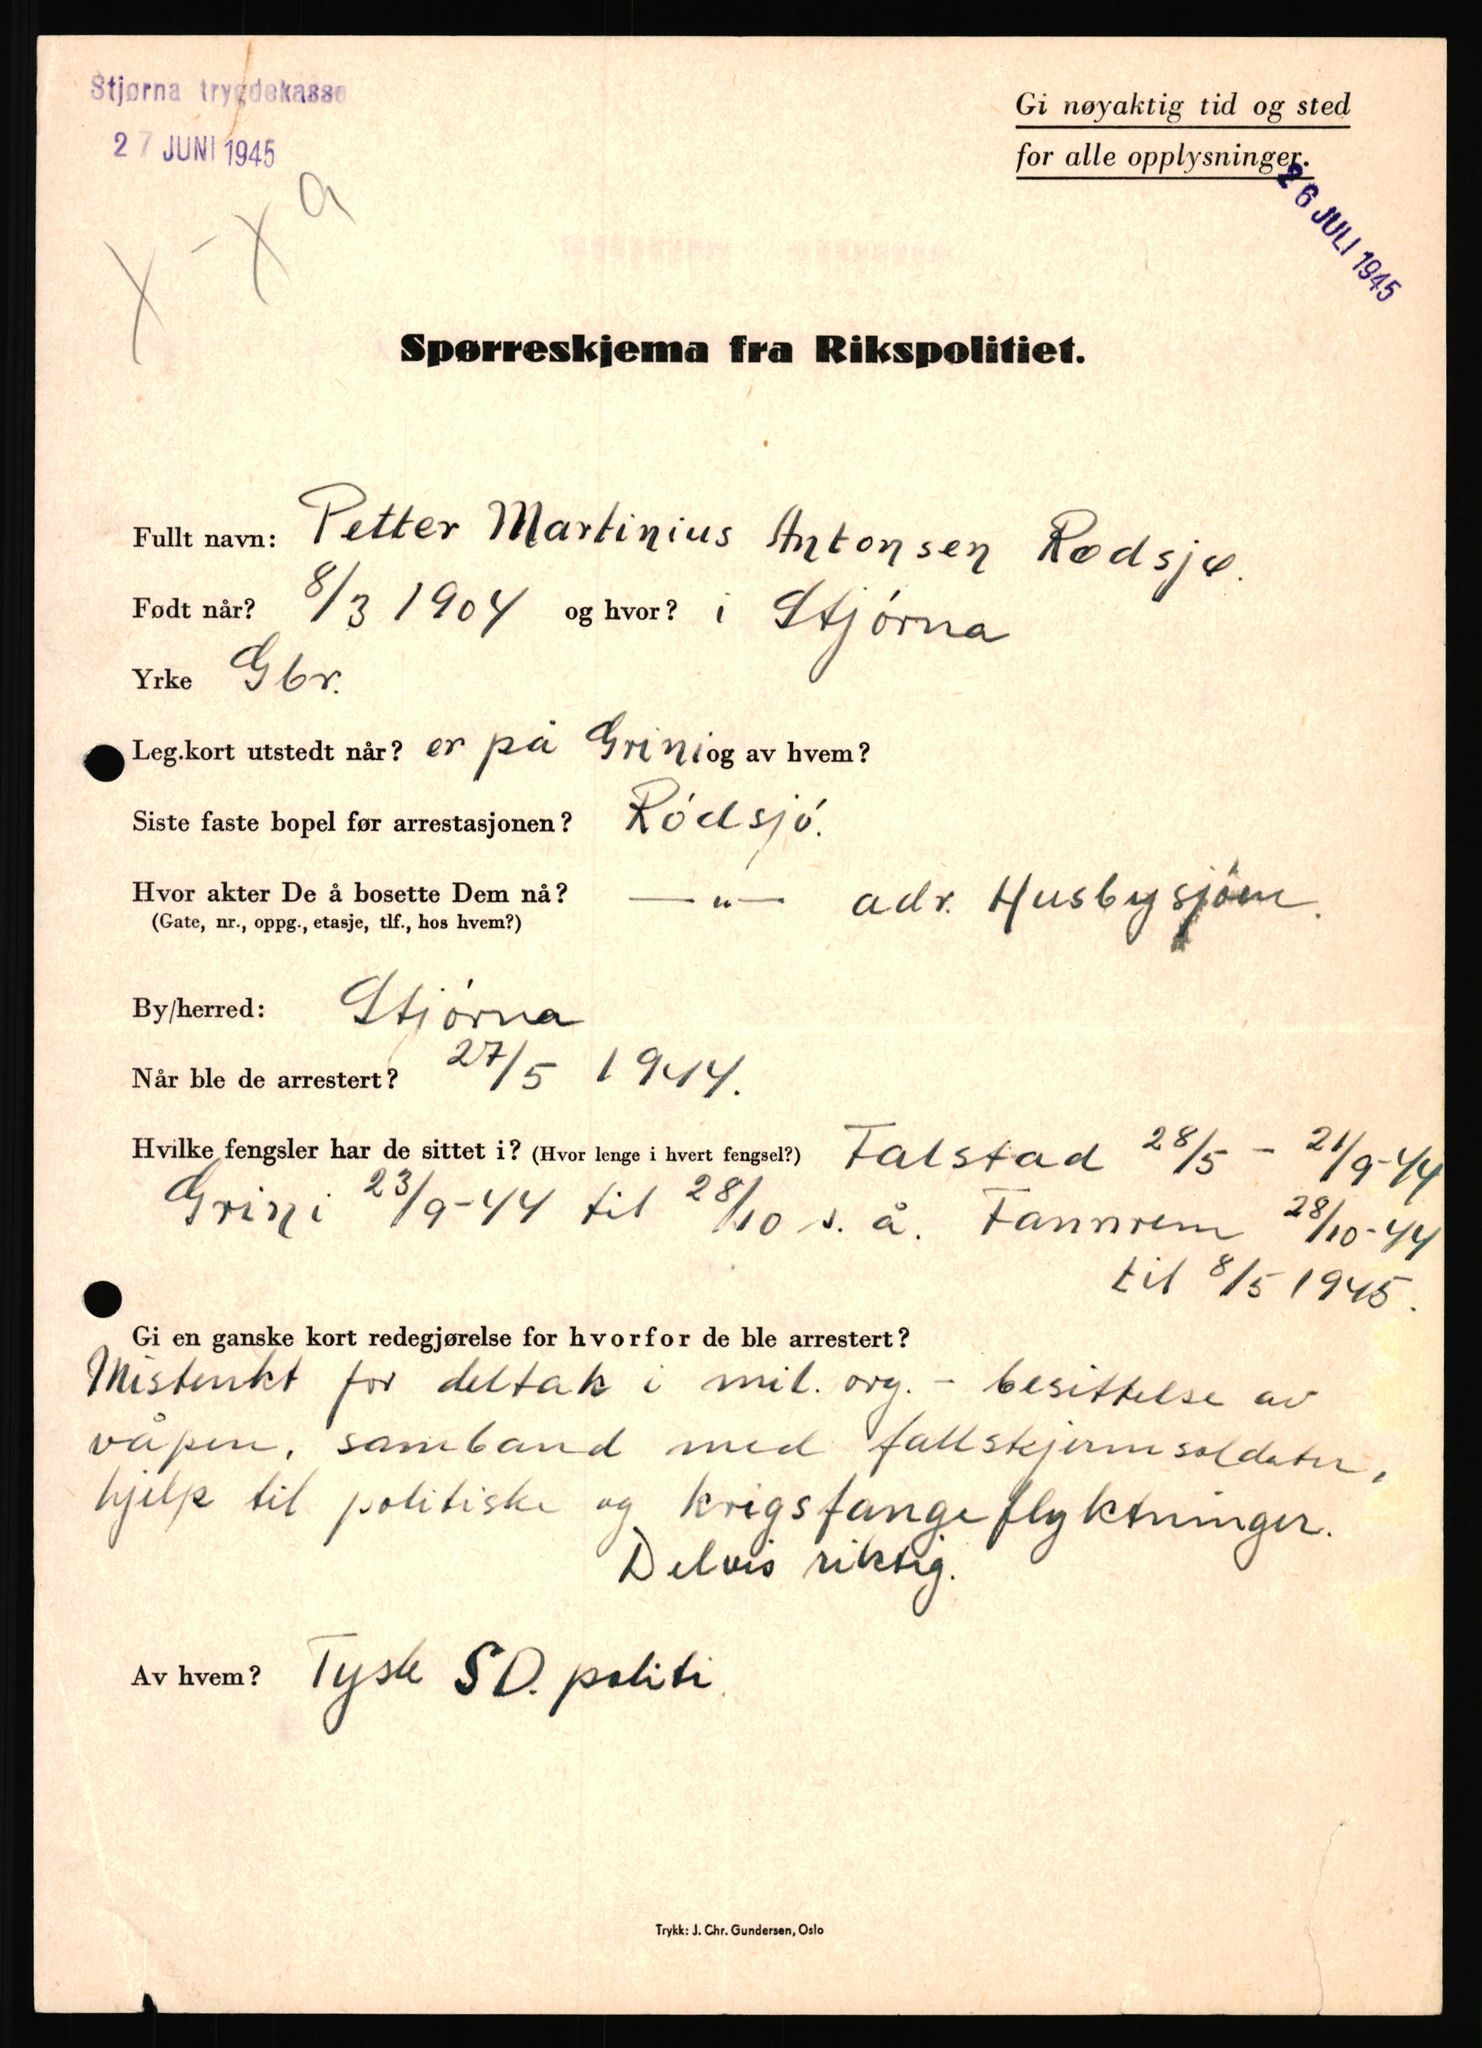 Stjørna trygdekasse
27 JUNI 1945
Gi nøyaktig tid og sted
for alle opplysninger.
26 JULI 1945
X - X a
Spørreskjema fra Rikspolitiet.
Fullt navn: Petter Martinius Antonsen Rødsjø.
Født når? 8/3 1904 og hvor? i Stjórna
Yrke Gbr.
Leg.kort utstedt når? er på Grini og av hvem?
Siste faste bopel før arrestasjonen? Ródsjó.
Hvor akter De å bosette Dem nå? — " — adr. Husbysjøen.
(Gate, nr., oppg., etasje, tlf., hos hvem?)
By/herred: Stjórna
Når ble de arrestert? 27/5 1944.
Hvilke fengsler har de sittet i? (Hvor lenge i hvert fengsel?) Falstad 28/5 - 21/9-44
Grini 23/9-44 til 28/10 s. å. Fannrem 28/10-44
til 8/5 1945.
Gi en ganske kort redegjørelse for hvorfor de ble arrestert?
Mistenkt for deltak i mil. org. - besittelse av
våpen, samband med fallskjermsoldater,
hjelp til politiske og krigsfangeflyktninger.
Delvis riktig.
Av hvem? Tysk SD. politi
Trykk: J. Chr. Gundersen, Oslo